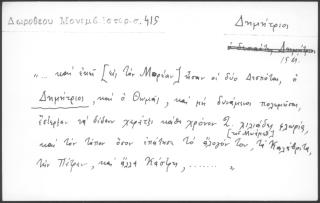 Δωροθεου Μονεμβ. Ιστορ. σ. 415
Δημήτριος
15 αι.
"... καὶ ἐκεῖ [εἰς τὸν Μορέαν] ἦσαν οἱ δύο Δεσπόται, ὁ
Δημήτριος, καὶ ὁ Θωμᾶς, καὶ μὴ δυνάμενοι πολεμῆσαι,
ἔστερξαν νὰ δίδουν χαράτζι κάθε χρόνον 2 χιλιάδες φλωρία,
[τοῦ Μωάμεθ]
καὶ τὸν τόπον ὅσον ἐπάτησε τὸ ἄλογόν του, τὰ Καλάβρυτα,
τὴν Πάτραν, καὶ ἄλλα Κάστρη, ....... "